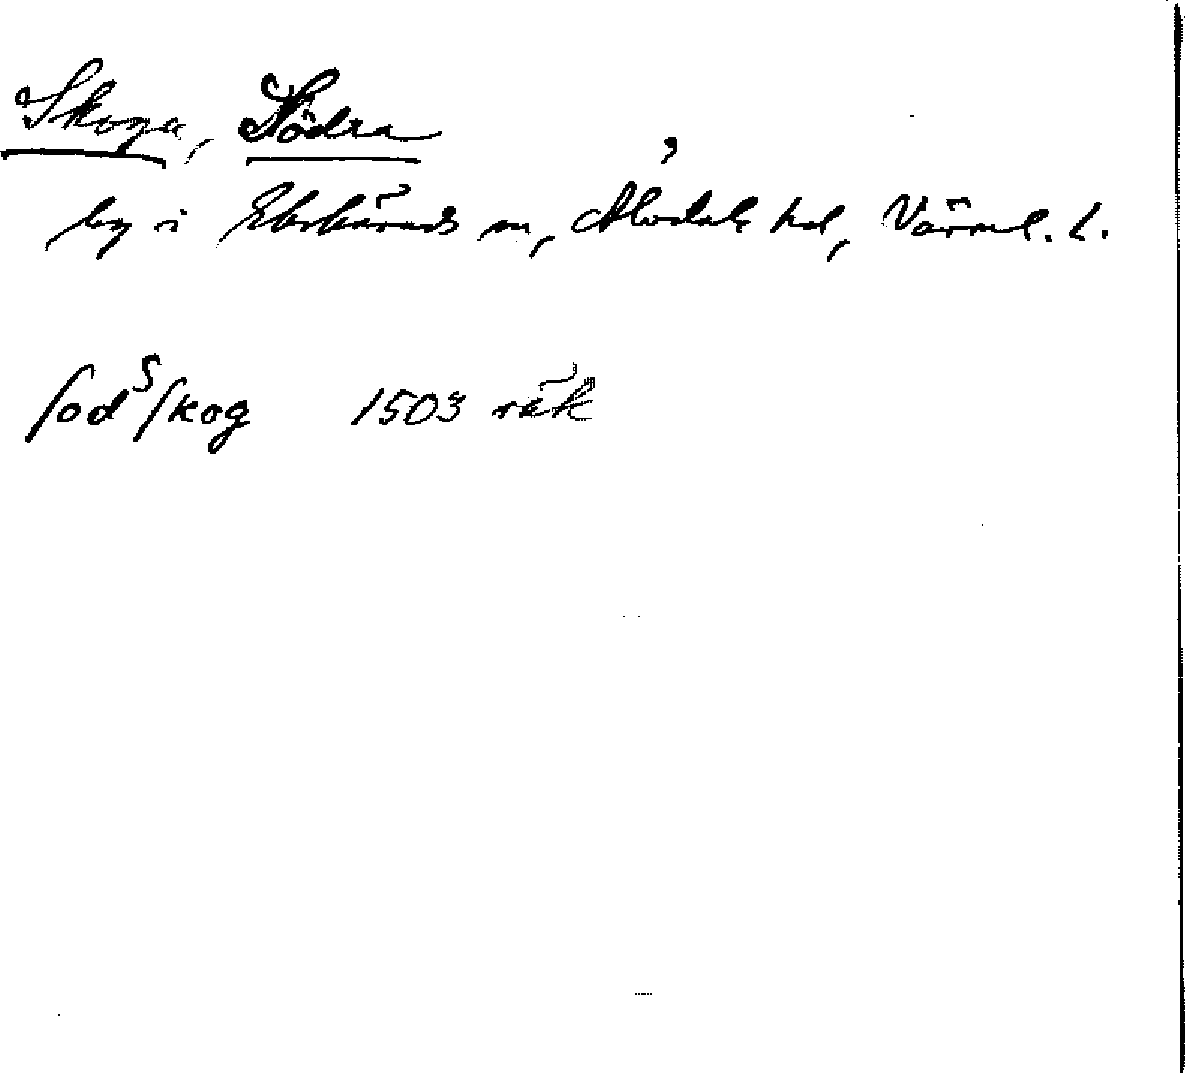 Skoga, Södra
by i Ekshärads sn, Älvdals hd, Värml. l.
ſodˢſkog 1503 räk